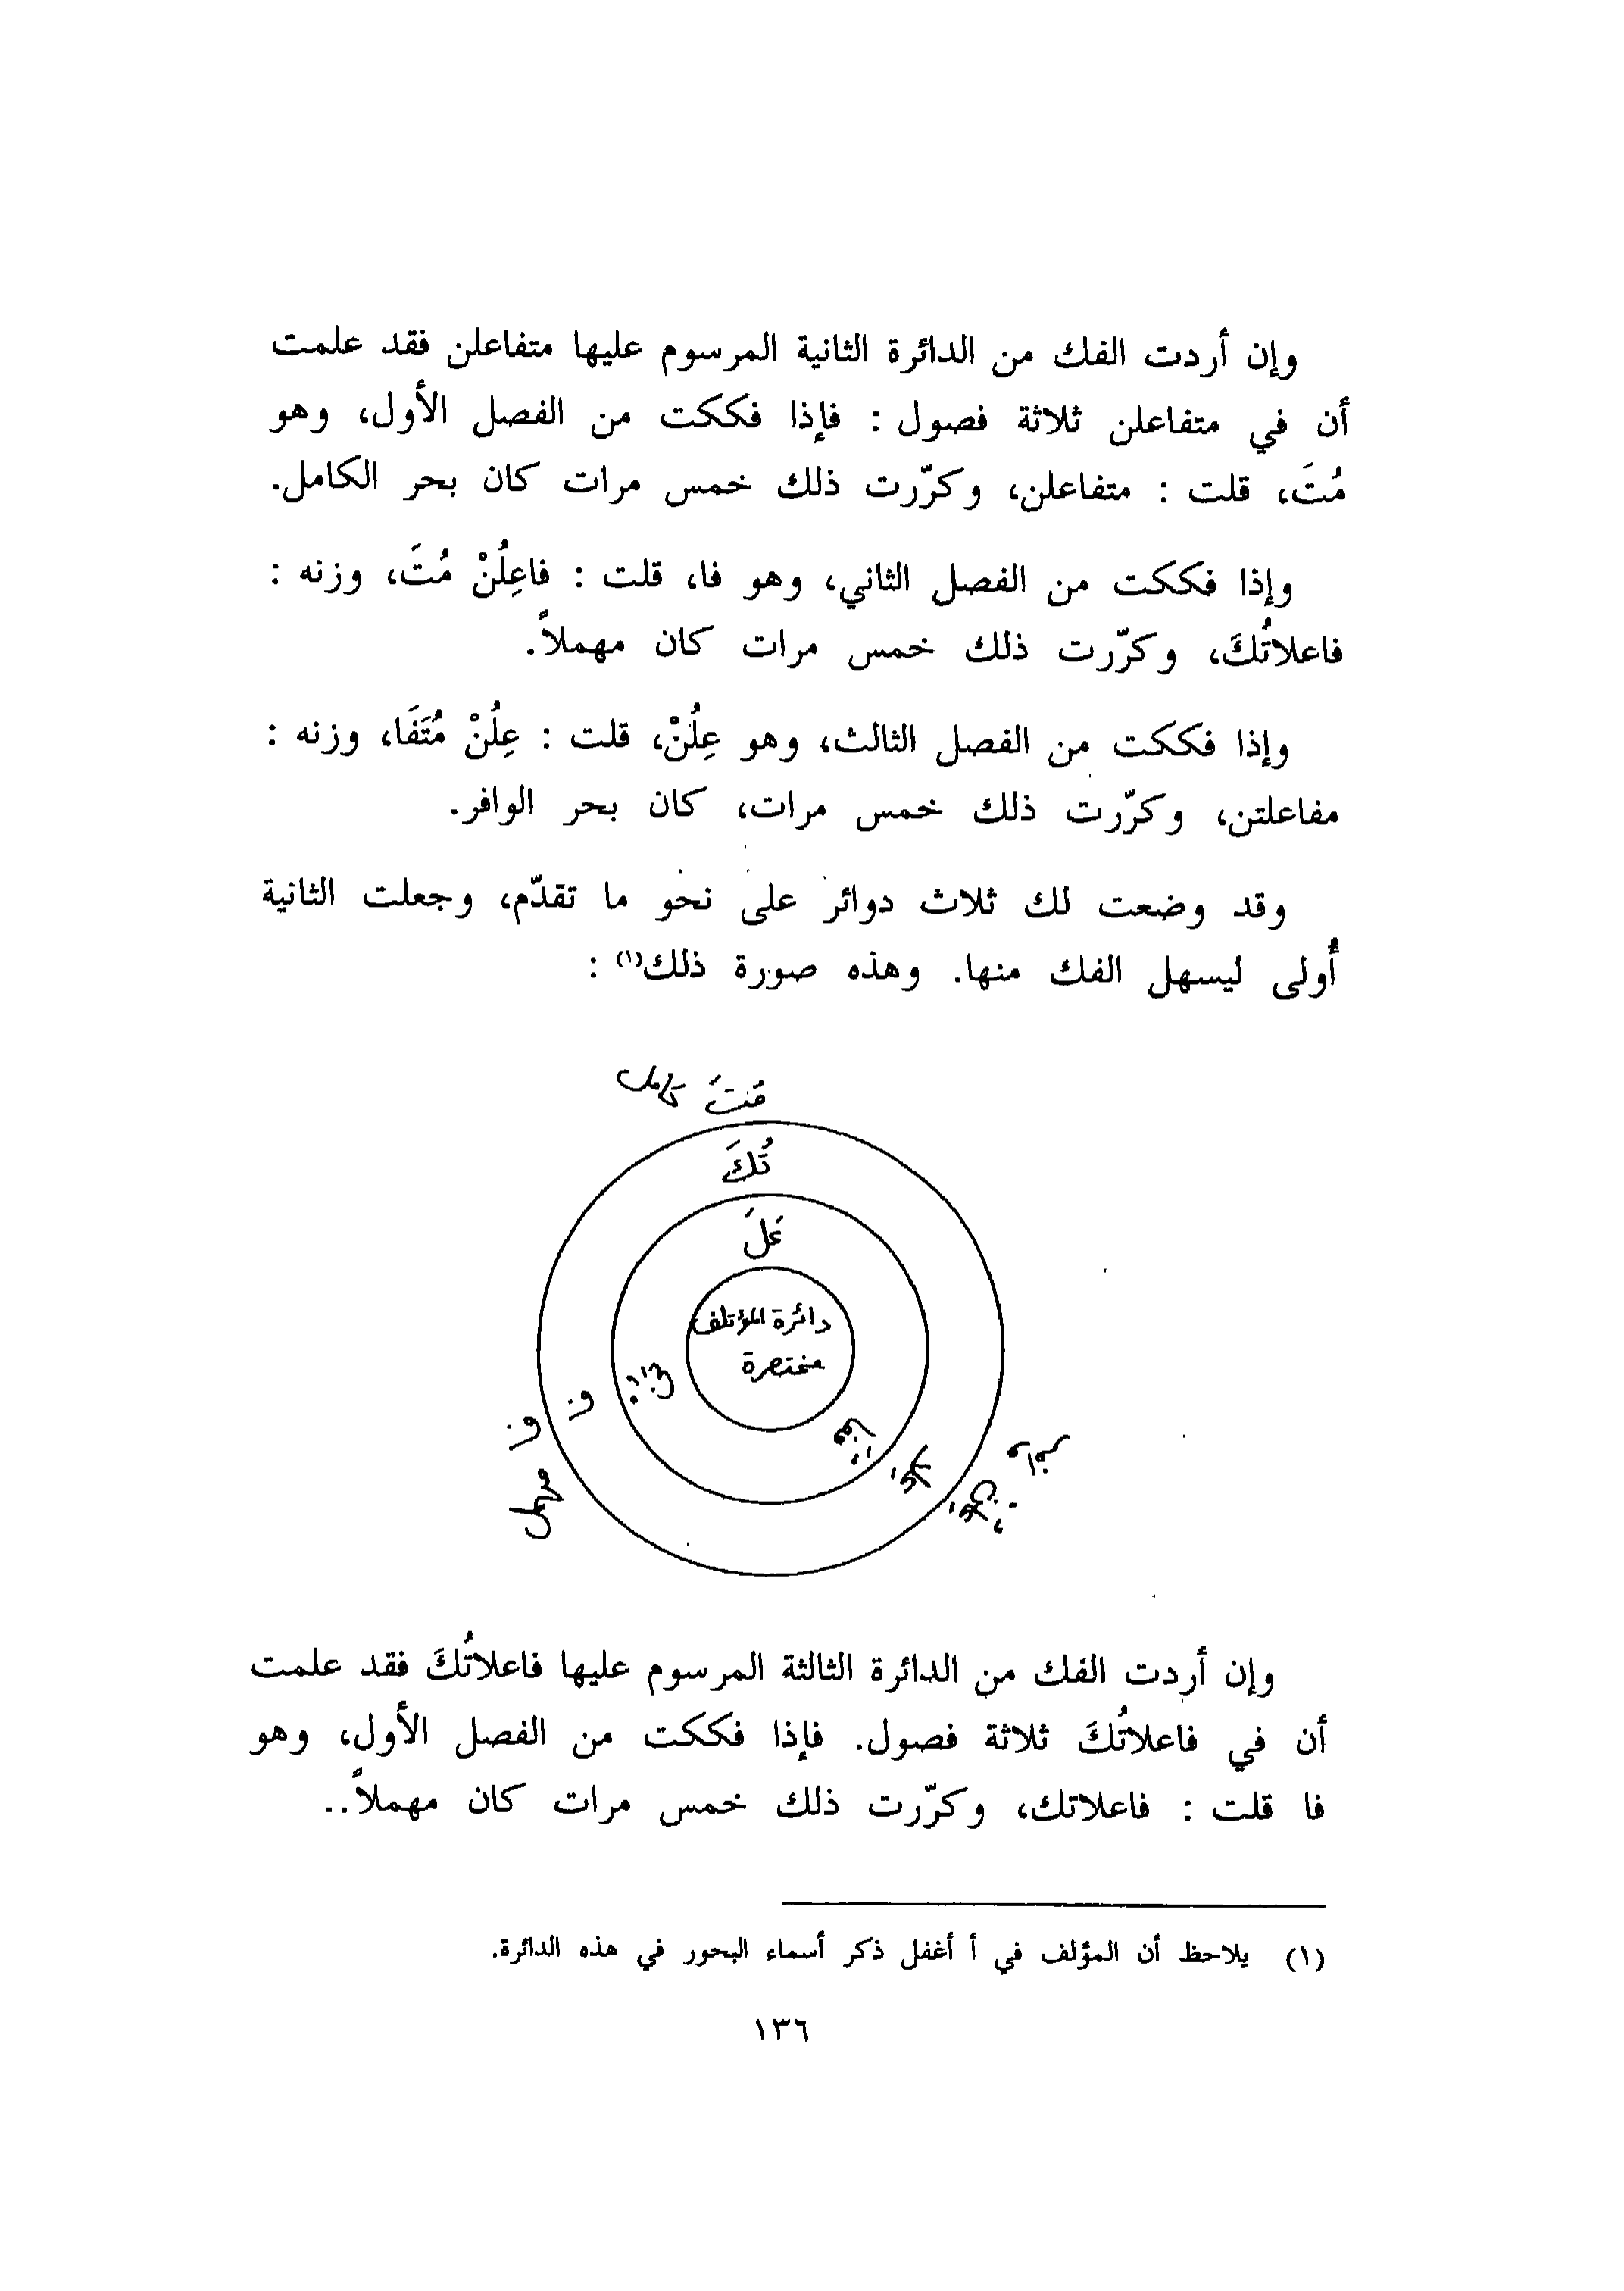 وإن أردت الفك من الدائرة الثانية المرسوم عليها متفاعلن فقد علمت
أن في متفاعلن ثلاثة فصول : فإذا فككت من الفصل الأول، وهو
مُتَ، قلت : متفاعلن، وكرّرت ذلك خمس مرات كان بحر الكامل.
وإذا فككت من الفصل الثاني، وهو فا، قلت : فاعِلُنْ مُتَ، وزنه :
فاعلاتُكَ، وكرّرت ذلك خمس مرات كان مهملاً.
وإذا فككت من الفصل الثالث، وهو عِلُنْ، قلت : عِلُنْ مُتَفَا، وزنه :
مفاعلتن، وكرّرت ذلك خمس مرات، كان بحر الوافر.
وقد وضعت لك ثلاث دوائر على نحو ما تقدّم، وجعلت الثانية
أُولى ليسهل الفك منها. وهذه صورة ذلك(١) :
مُتَ كامل
تُكَ
عَلَ
دائرة المؤتلف
مختصرة
تن
فا
فا
مهمل
مفا
علا
علن
وافر
وإن أردت الفك من الدائرة الثالثة المرسوم عليها فاعلاتُكَ فقد علمت
أن في فاعلاتُكَ ثلاثة فصول. فإذا فككت من الفصل الأول، وهو
فا قلت : فاعلاتك، وكرّرت ذلك خمس مرات كان مهملاً..
(١) يلاحظ أن المؤلف في أ أغفل ذكر أسماء البحور في هذه الدائرة.
١٣٦